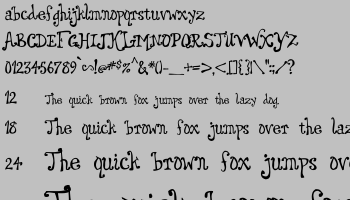 abcdefghijklmnopqrstuvwxyz
ABCDEFGHIJKLMNOPQRSTUVWXYZ
0123456789`~!@#$%^&*()-_+=>,<[]{}|\":;/?
12 The quick brown fox jumps over the lazy dog.
18 The quick brown fox jumps over the laz
24 The quick brown fox jumps ov